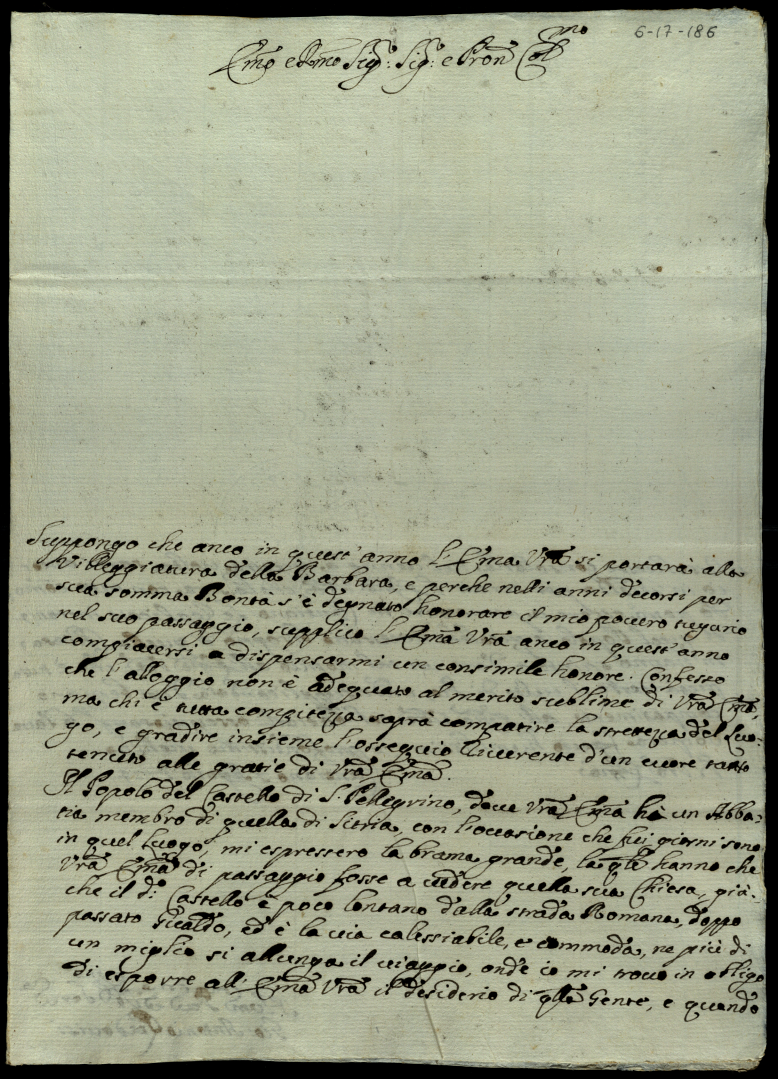 6-17-186
Emo e Rmo Sig: Sig: e Pron Colmo
Suppongo che anco in quest'anno l'Ema Vra si portarà alla
Villeggiatura della Barbara, e perche nelli anni decorsi per
sua somma Bontà s'è degnato honorare il mio povero tugurio
nel suo passaggio, supplico l'Ema Vra anco in quest'anno
compiacersi a dispensarmi un consimile honore. Confesso
che l'alloggio non è adeguato al merito sublime di Vra Ema,
ma chi è tutta compitezza saprà compatire la strettezza del Luo-
go, e gradire insieme l'ossequio riverente d'un cuore tanto
tenuto alle gratie di Vra Ema.
Il Popolo del Castello di S. Pellegrino, dove Vra Ema hà un Abba-
tia membro di quella di Sitria, con l'occasione che fui giorni sono
in quel luogo, mi espressero la brama grande, la qle hanno che
Vra Ema di passaggio fosse a vedere quella sua Chiesa, già-
che il do: Castello è poco lontano dalla strada Romana, doppo
passato Gualdo, ed è la via calessiabile, e commoda, ne più di
un miglio si allunga il viaggio, onde io mi trovo in obligo
di esporre all'Ema Vra il desiderio di qlla Gente, e quando